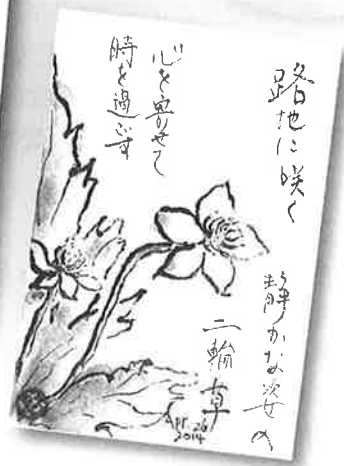 路地に咲く
静かな姿の
二輪草
心を寄せて
時を過ごす
Apr. 26
2014